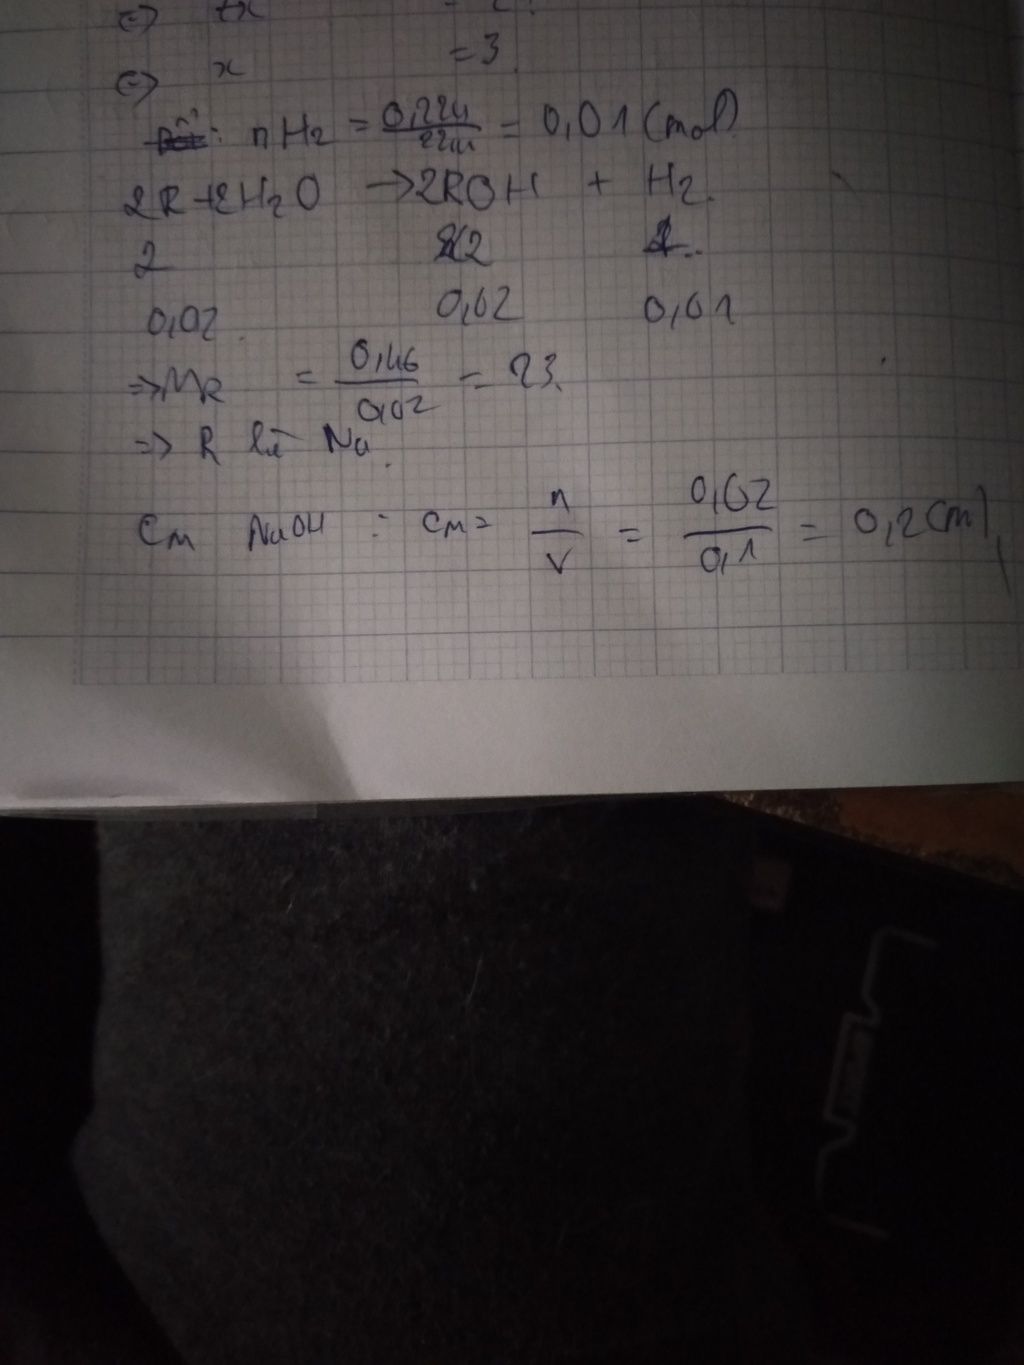 <=>
<=> x = 3
nH2 = 0,224/22,4 = 0,01 (mol)
2R + 2H2O → 2ROH + H2.
2 2 1
0,02 0,02 0,01
=> MR = 0,46/0,02 = 23.
=> R là Na.
CM NaOH : CM = n/V = 0,02/0,1 = 0,2 (M)